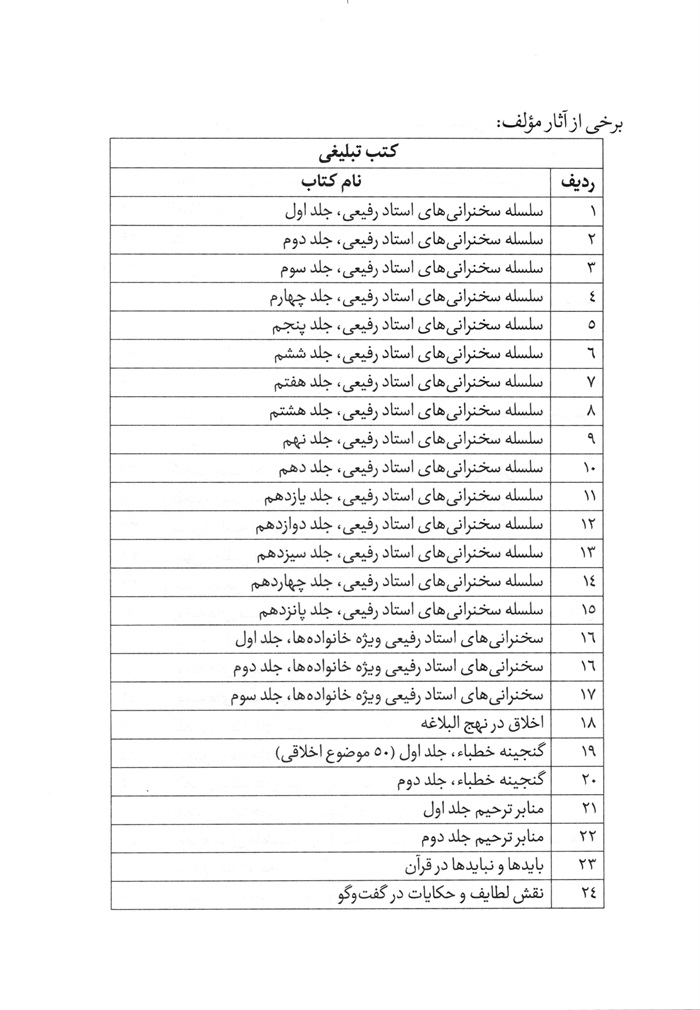 برخی از آثار مؤلف:
کتب تبلیغی
ردیف نام کتاب
١ سلسله سخنرانی‌های استاد رفیعی، جلد اول
٢ سلسله سخنرانی‌های استاد رفیعی، جلد دوم
٣ سلسله سخنرانی‌های استاد رفیعی، جلد سوم
٤ سلسله سخنرانی‌های استاد رفیعی، جلد چهارم
٥ سلسله سخنرانی‌های استاد رفیعی، جلد پنجم
٦ سلسله سخنرانی‌های استاد رفیعی، جلد ششم
٧ سلسله سخنرانی‌های استاد رفیعی، جلد هفتم
٨ سلسله سخنرانی‌های استاد رفیعی، جلد هشتم
٩ سلسله سخنرانی‌های استاد رفیعی، جلد نهم
١٠ سلسله سخنرانی‌های استاد رفیعی، جلد دهم
١١ سلسله سخنرانی‌های استاد رفیعی، جلد یازدهم
١٢ سلسله سخنرانی‌های استاد رفیعی، جلد دوازدهم
١٣ سلسله سخنرانی‌های استاد رفیعی، جلد سیزدهم
١٤ سلسله سخنرانی‌های استاد رفیعی، جلد چهاردهم
١٥ سلسله سخنرانی‌های استاد رفیعی، جلد پانزدهم
١٦ سخنرانی‌های استاد رفیعی ویژه خانواده‌ها، جلد اول
١٦ سخنرانی‌های استاد رفیعی ویژه خانواده‌ها، جلد دوم
١٧ سخنرانی‌های استاد رفیعی ویژه خانواده‌ها، جلد سوم
١٨ اخلاق در نهج البلاغه
١٩ گنجینه خطباء، جلد اول (٥٠ موضوع اخلاقی)
٢٠ گنجینه خطباء، جلد دوم
٢١ منابر ترحیم جلد اول
٢٢ منابر ترحیم جلد دوم
٢٣ بایدها و نبایدها در قرآن
٢٤ نقش لطایف و حکایات در گفت‌وگو